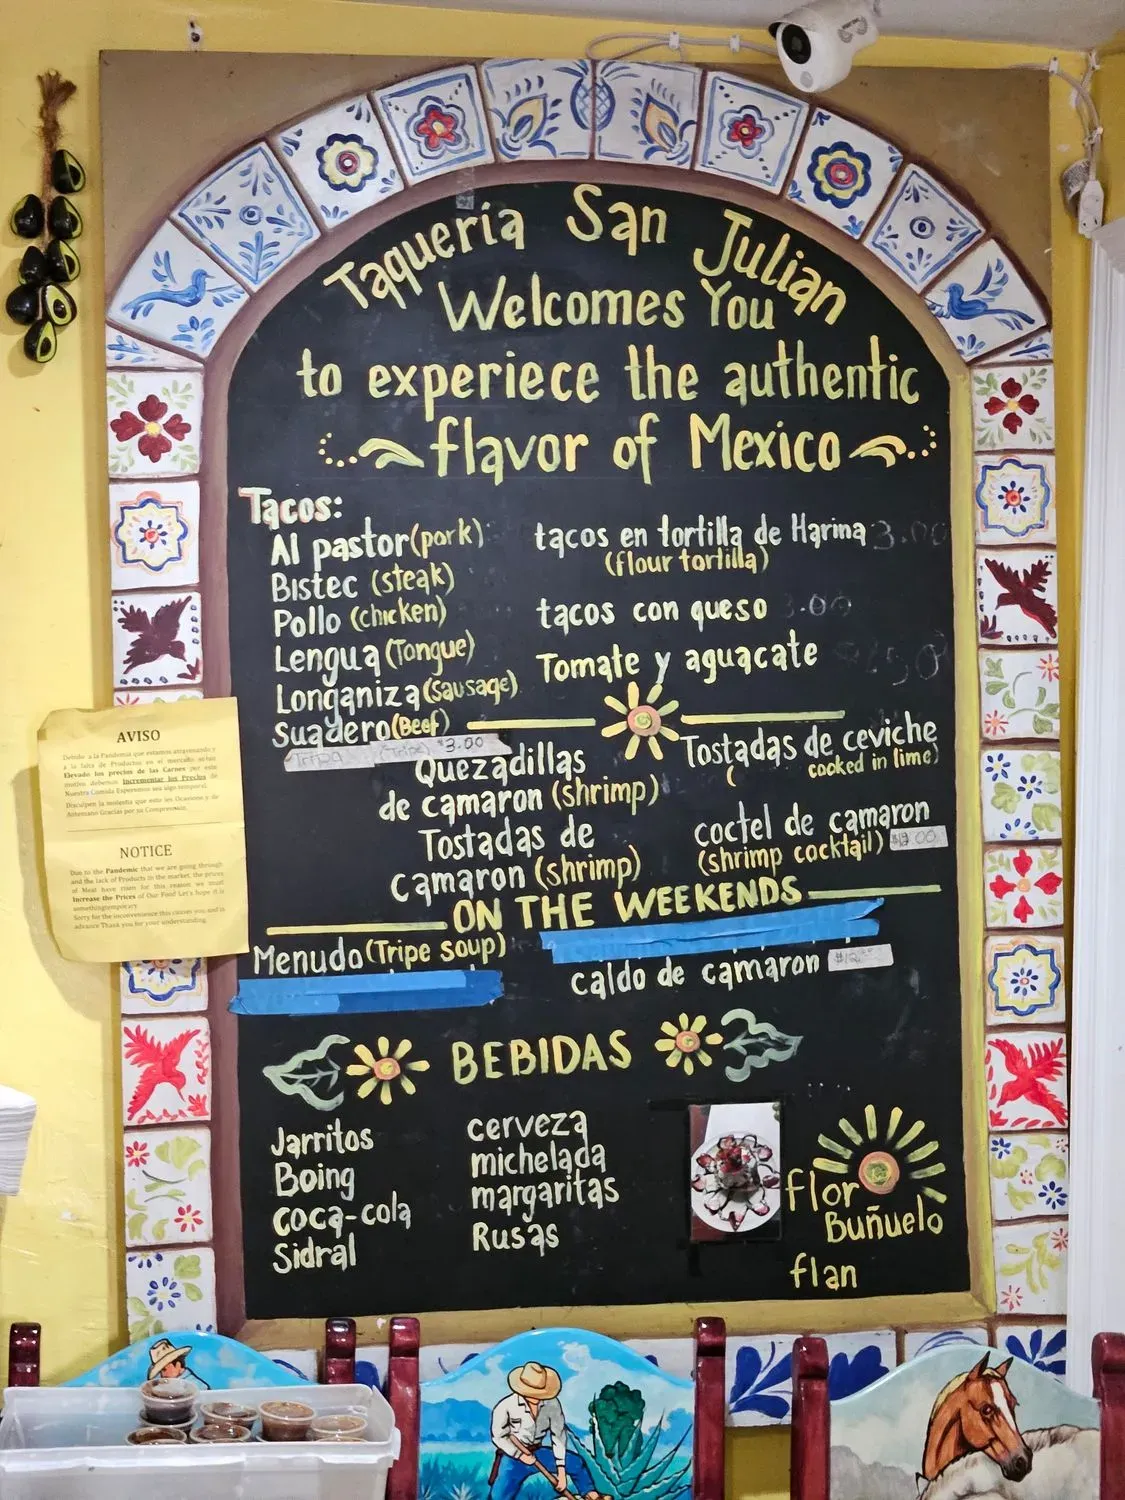 Taqueria San Julian
Welcomes You
to experiece the authentic
flavor of Mexico
Tacos:
Al pastor (pork)
Bistec (steak)
Pollo (chicken)
Lengua (Tongue)
Longaniza (sausage)
Suadero (Beef)
Tripa (Tripe) $3.00
tacos en tortilla de Harina 3.00
(flour tortilla)
tacos con queso 3.00
Tomate y aguacate
Quezadillas
de camaron (shrimp)
Tostadas de
camaron (shrimp)
Tostadas de ceviche
( cooked in lime)
coctel de camaron
(shrimp cocktail)
ON THE WEEKENDS
Menudo (Tripe soup)
caldo de camaron
BEBIDAS
Jarritos
Boing
coca-cola
Sidral
cerveza
michelada
margaritas
Rusas
flor
Buñuelo
flan
AVISO
Debido a la Pandemia que estamos atravesando y
a la falta de Productos en el mercado, se han
Elevado los precios de las Carnes por este
motivo debemos Incrementar los Precios de
Nuestra Comida Esperemos sea algo temporal.
Disculpen la molestia que esto les Ocasione y de
Antemano Gracias por su Comprension.
NOTICE
Due to the Pandemic that we are going through
and the lack of Products in the market, the prices
of Meat have risen for this reason we must
Increase the Prices of Our Food Let's hope it is
somethingtemporary.
Sorry for the inconvenience this causes you and in
advance Thank you for your understanding.